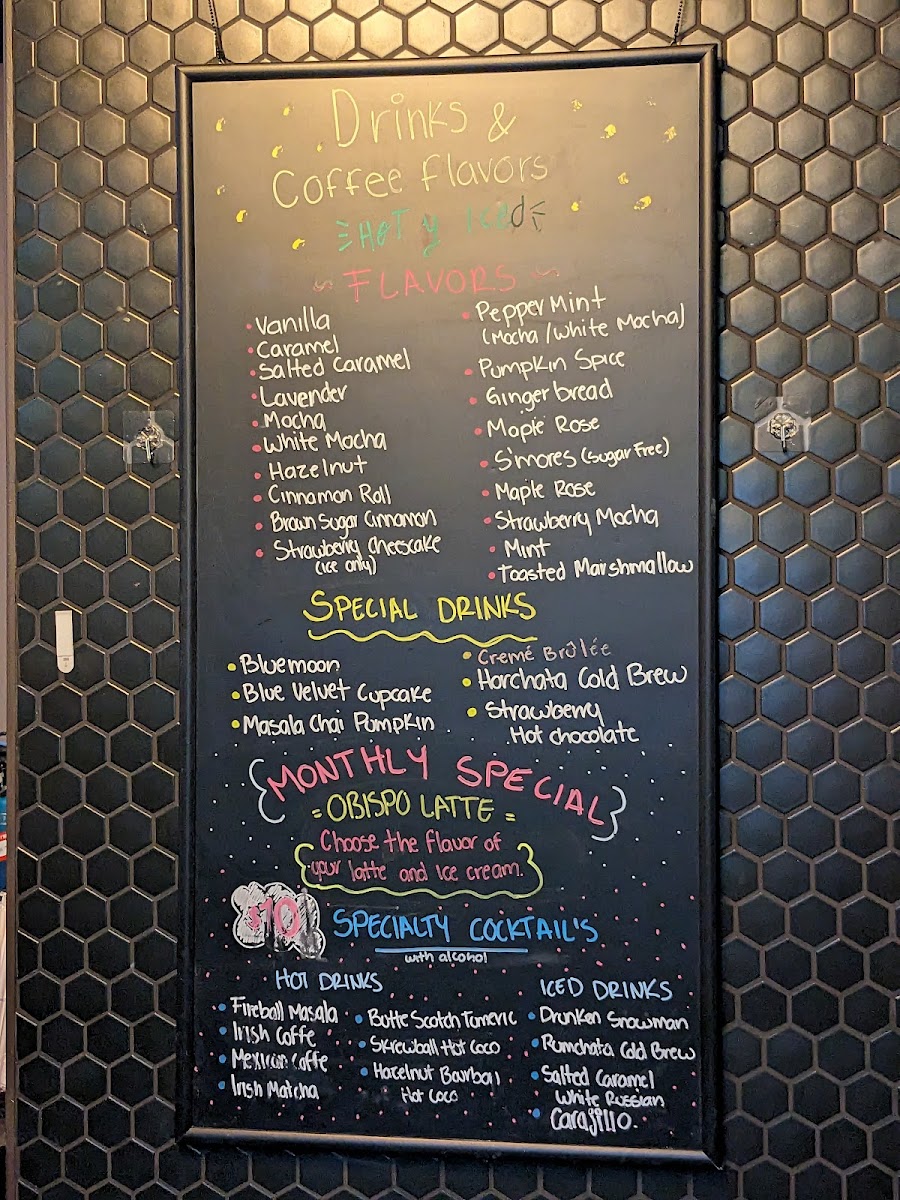 Drinks &
Coffee flavors
HOT y iced
FLAVORS
Vanilla
Caramel
Salted Caramel
Lavender
Mocha
White Mocha
Hazelnut
Cinnamon Roll
Brown Sugar Cinnamon
Strawberry Cheescake
(ice only)
PepperMint
(Mocha/White Mocha)
Pumpkin Spice
Gingerbread
Maple Rose
S'mores (Sugar Free)
Maple Rose
Strawberry Mocha
Mint
Toasted Marshmallow
SPECIAL DRINKS
Bluemoon
Blue Velvet Cupcake
Masala Chai Pumpkin
Cremé Brûlée
Horchata Cold Brew
Strawberry
Hot chocolate
MONTHLY SPECIAL
= OBISPO LATTE =
Choose the flavor of
your latte and Ice cream.
$10
SPECIALTY COCKTAIL'S
with alcohol
HOT DRINKS
Fireball Masala
Irish Coffe
Mexican Coffe
Irish Matcha
ButteScotch Tumeric
Skrewball Hot Coco
Hazelnut Bourbal
Hot Coco
ICED DRINKS
Drunken Snowman
Rumchata Cold Brew
Salted Caramel
White Russian
Carajillo.